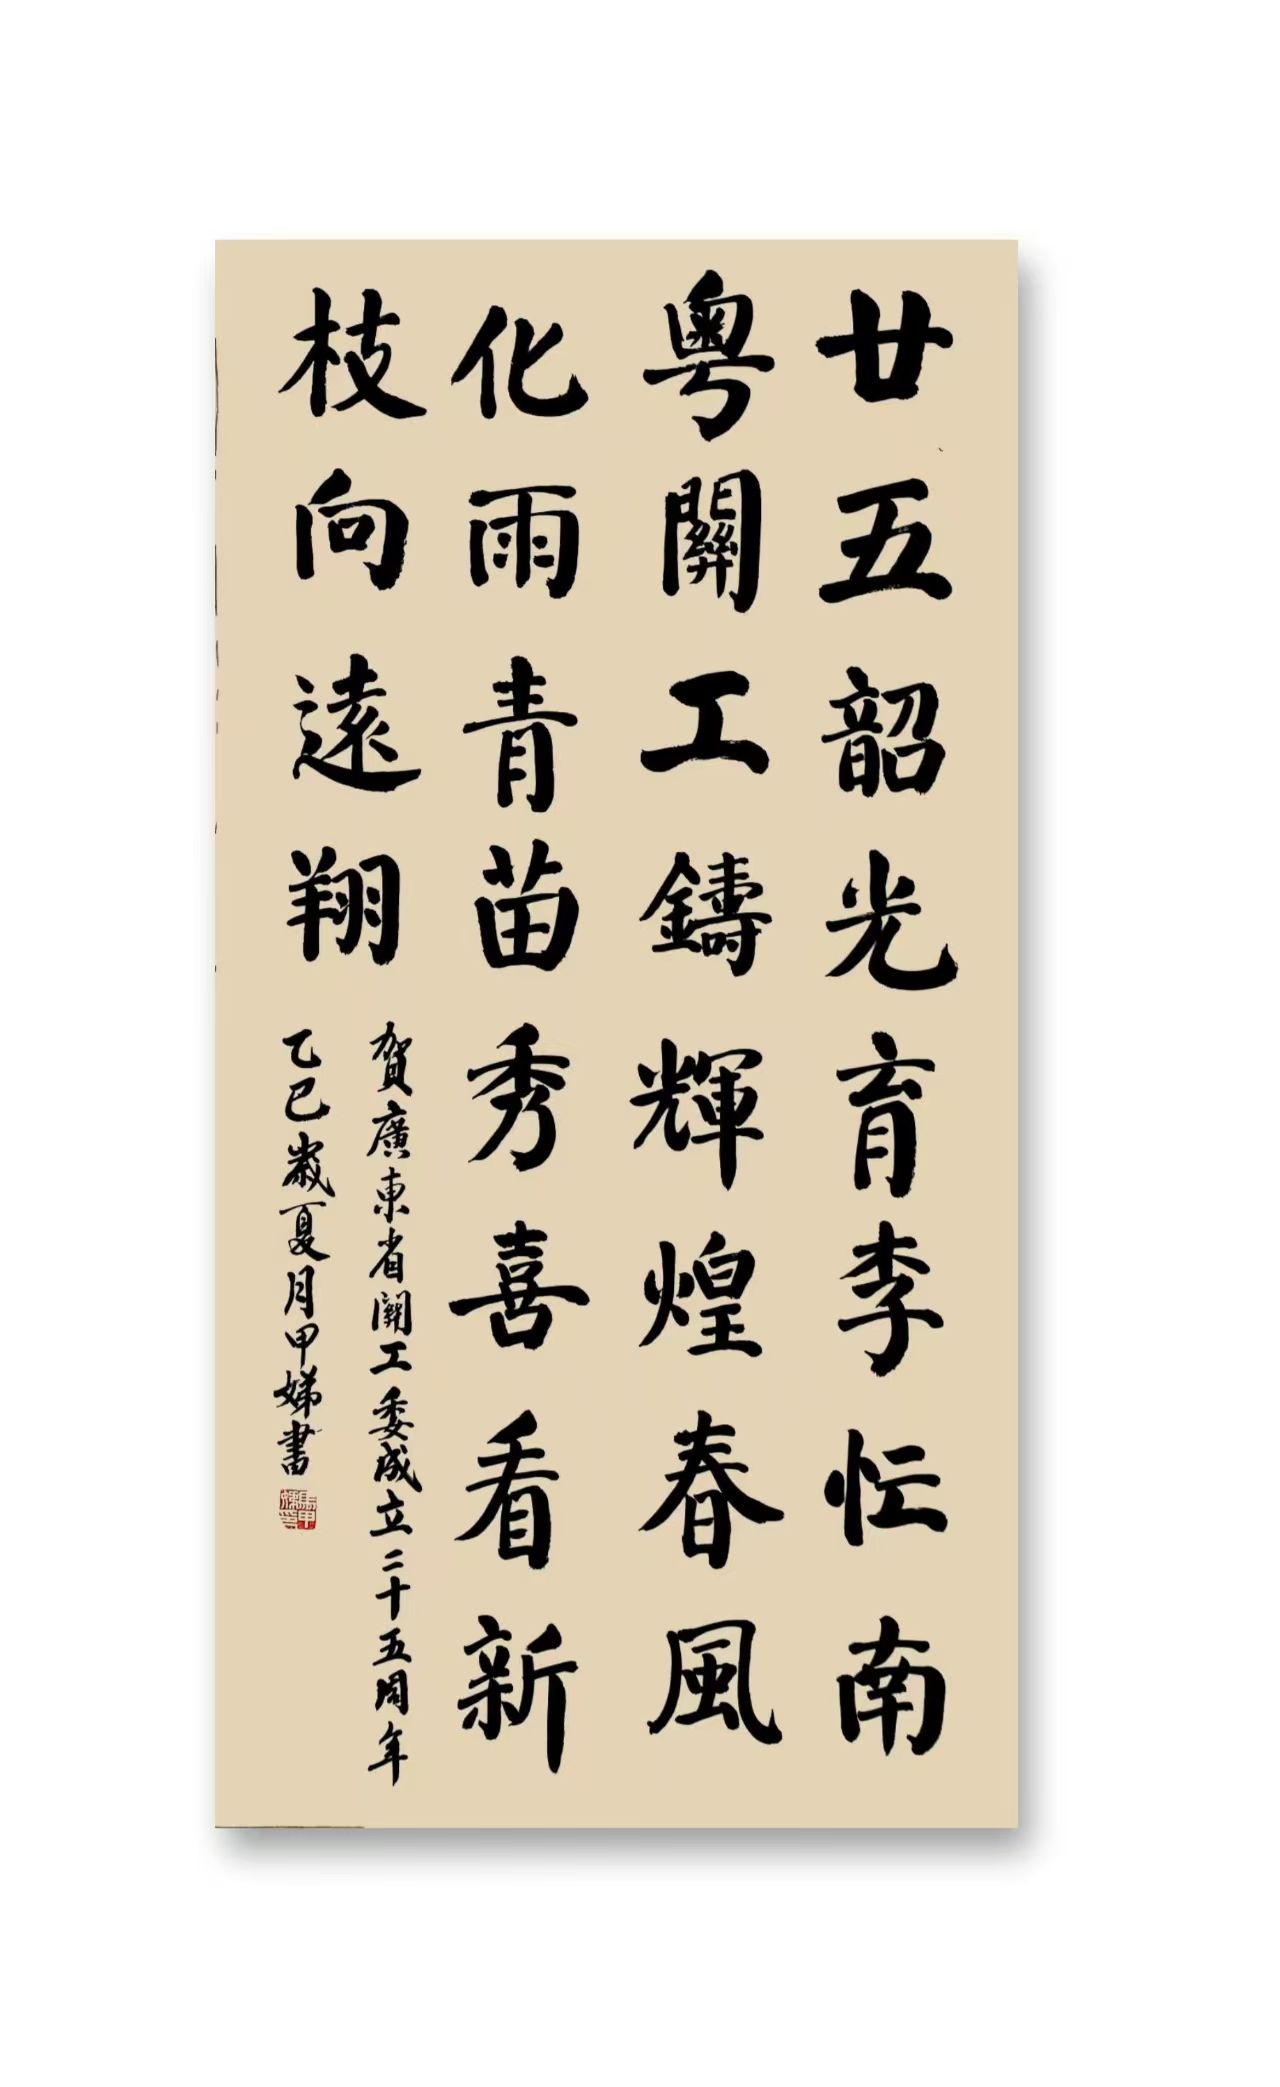 廿五韶光育李忙南
粵關工鑄輝煌春風
化雨青苗秀喜看新
枝向遠翔
賀廣東省關工委成立二十五周年
乙巳歲夏月甲娣書
馬甲娣印